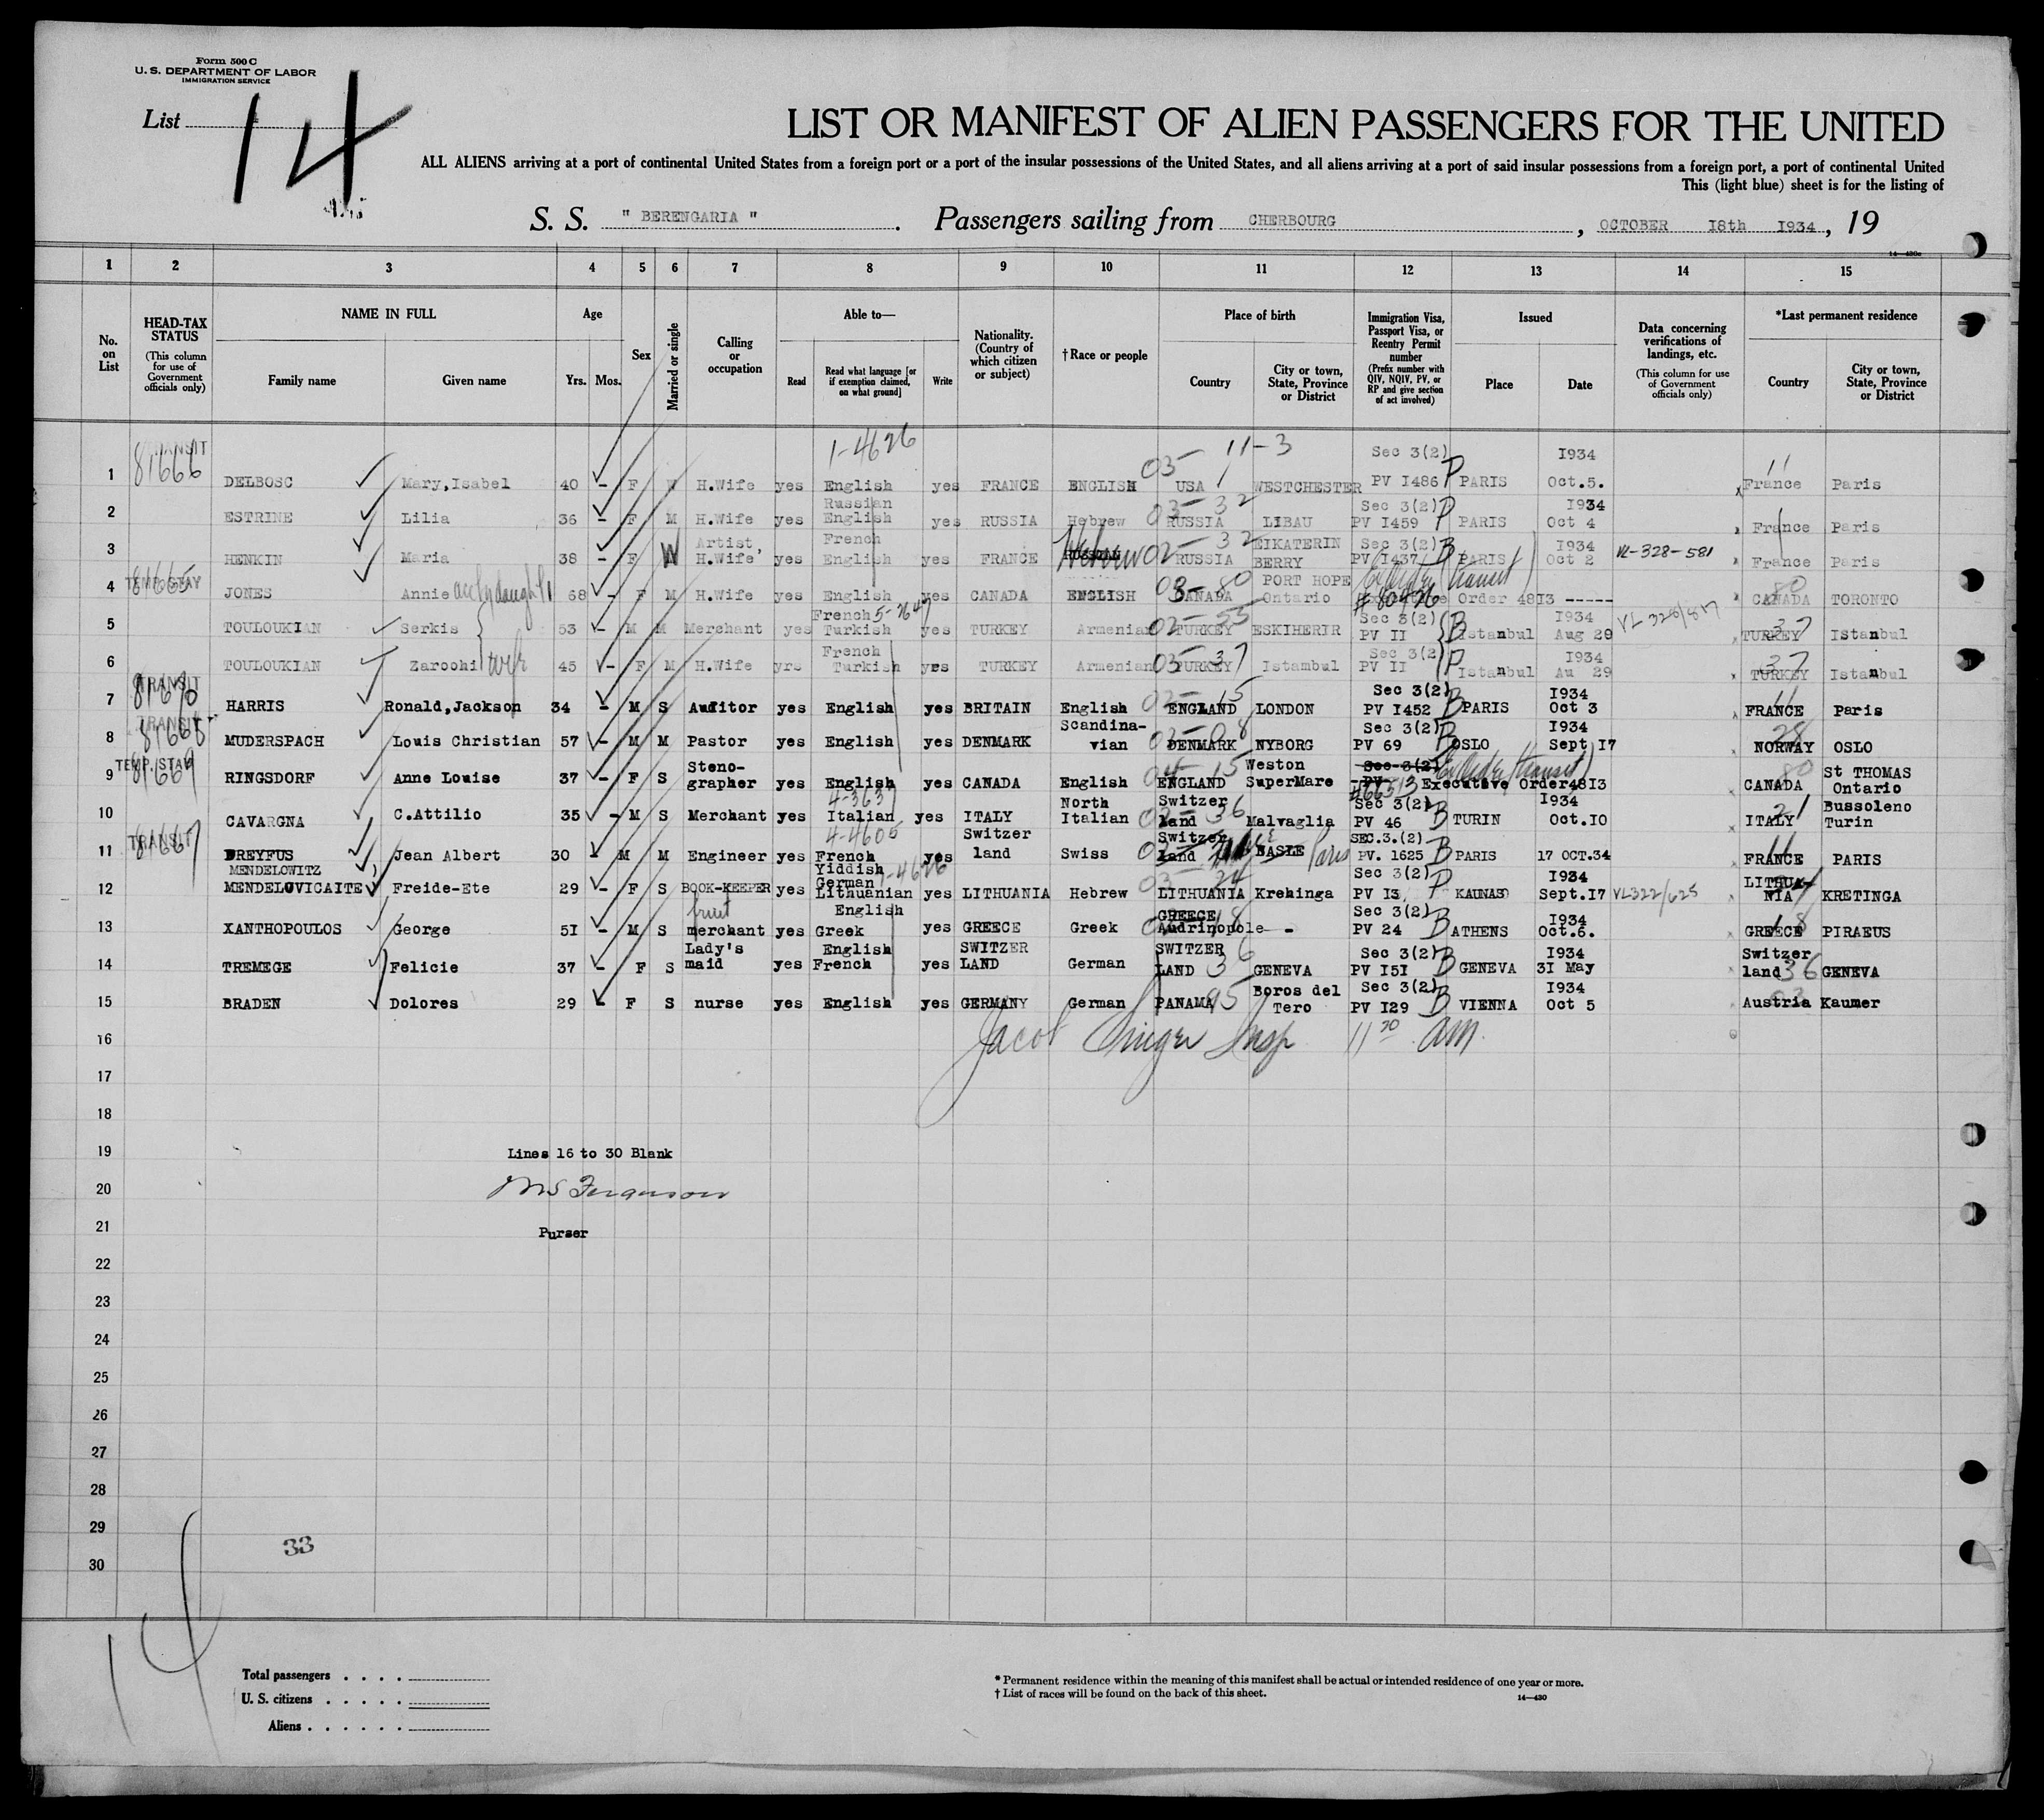 Form 500 C
U. S. DEPARTMENT OF LABOR
IMMIGRATION SERVICE
List 14
LIST OR MANIFEST OF ALIEN PASSENGERS FOR THE UNITED
ALL ALIENS arriving at a port of continental United States from a foreign port or a port of the insular possessions of the United States, and all aliens arriving at a port of said insular possessions from a foreign port, a port of continental United
This (light blue) sheet is for the listing of
S. S. " BERENGARIA " . Passengers sailing from CHERBOURG , OCTOBER 18th 1934 , 19
14—430c
1 2 3 4 5 6 7 8 9 10 11 12 13 14 15
No. on List
HEAD-TAX STATUS (This column for use of Government officials only)
NAME IN FULL Family name Given name
Age Yrs. Mos.
Sex
Married or single
Calling or occupation
Able to— Read Read what language [or if exemption claimed, on what ground] Write
Nationality. (Country of which citizen or subject)
†Race or people
Place of birth Country City or town, State, Province or District
Immigration Visa, Passport Visa, or Reentry Permit number (Prefix number with QIV, NQIV, PV, or RP and give section of act involved)
Issued Place Date
Data concerning verifications of landings, etc. (This column for use of Government officials only)
*Last permanent residence Country City or town, State, Province or District
1-4626 03- 11-3
1 TRANSIT 81666 DELBOSC Mary,Isabel 40 - F W H.Wife yes English yes FRANCE ENGLISH USA WESTCHESTER Sec 3(2) PV 1486 P PARIS 1934 Oct.5. 11 France Paris
2 ESTRINE Lilia 36 - F M H.Wife yes Russian English yes RUSSIA Hebrew 03-32 RUSSIA LIBAU Sec 3(2) PV 1459 P PARIS 1934 Oct 4 France Paris
3 HENKIN Maria 38 - F W Artist, H.Wife yes French English yes FRANCE Hebrew 02-32 RUSSIA EIKATERIN BERRY Sec 3(2) PV 1437 B PARIS 1934 Oct 2 VL-328-581 France Paris
4 TEMP. STAY 81665 JONES Annie 68 - F M H.Wife yes English yes CANADA ENGLISH 03-80 CANADA PORT HOPE Ontario # 80426 Order 4813 ----- 80 CANADA TORONTO
5 TOULOUKIAN Serkis 53 - M M Merchant yes French Turkish yes TURKEY Armenian 02-55 TURKEY ESKIHERIR Sec 3(2) PV II B Istanbul 1934 Aug 29 VL 328/817 37 TURKEY Istanbul
6 TOULOUKIAN Zaroohi wife 45 - F M H.Wife yrs French Turkish yes TURKEY Armenian 03-37 TURKEY Istambul Sec 3(2) PV II P Istanbul 1934 Au 29 37 TURKEY Istanbul
7 TRANSIT 81670 HARRIS Ronald,Jackson 34 - M S Auditor yes English yes BRITAIN English 02-15 ENGLAND LONDON Sec 3(2) PV 1452 B PARIS 1934 Oct 3 11 FRANCE Paris
8 TRANSIT 81668 MUDERSPACH Louis Christian 57 - M M Pastor yes English yes DENMARK Scandina-vian 02-08 DENMARK NYBORG Sec 3(2) PV 69 B OSLO 1934 Sept 17 28 NORWAY OSLO
9 TEMP. STAY 81669 RINGSDORF Anne Louise 37 - F S Steno-grapher yes English yes CANADA English 04-15 ENGLAND Weston SuperMare Sec 3(2) PV- #66513 Executive Order4813 80 CANADA St THOMAS Ontario
10 CAVARGNA C.Attilio 35 - M S Merchant yes 4-3637 Italian yes ITALY North Italian 02-36 Switzer land Malvaglia Sec 3(2) PV 46 B TURIN 1934 Oct.10 21 ITALY Bussoleno Turin
11 TRANSIT 81667 DREYFUS Jean Albert 30 - M M Engineer yes 4-4605 French yes Switzer land Swiss Switzer land BASLE Paris SEC.3.(2) PV. 1625 B PARIS 17 OCT.34 11 FRANCE PARIS
12 MENDELOWITZ MENDELOVICAITE Freide-Ete 29 - F S BOOK-KEEPER yes Yiddish German Lithuanian 1-4626 yes LITHUANIA Hebrew 03-24 LITHUANIA Krehinga Sec 3(2) PV 13 P KAUNAS 1934 Sept.17 VL322/625 LITHUA-NIA KRETINGA
13 XANTHOPOULOS George 51 - M S fruit merchant yes English Greek yes GREECE Greek 18 GREECE Audrinopole - Sec 3(2) PV 24 B ATHENS 1934 Oct.6. 18 GREECE PIRAEUS
14 TREMEGE Felicie 37 - F S Lady's maid yes English French yes SWITZER LAND German 36 SWITZER LAND GENEVA Sec 3(2) PV 151 B GENEVA 1934 31 May 36 Switzer land GENEVA
15 BRADEN Dolores 29 - F S nurse yes English yes GERMANY German PANAMA 95 Boros del Tero Sec 3(2) PV 129 B VIENNA 1934 Oct 5 Austria Kaumer
16 Jacob Singer Insp 11 30 AM.
17
18
19 Lines 16 to 30 Blank
20 Ferguson
21 Purser
22
23
24
25
26
27
28
29 33
30
14
Total passengers . . . .
U. S. citizens . . . . .
Aliens . . . . . .
* Permanent residence within the meaning of this manifest shall be actual or intended residence of one year or more.
† List of races will be found on the back of this sheet. 14—430